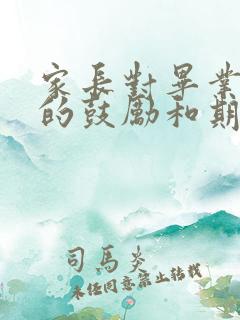 家長對畢業
的鼓勵和期
司馬炎
未经同意禁止转载